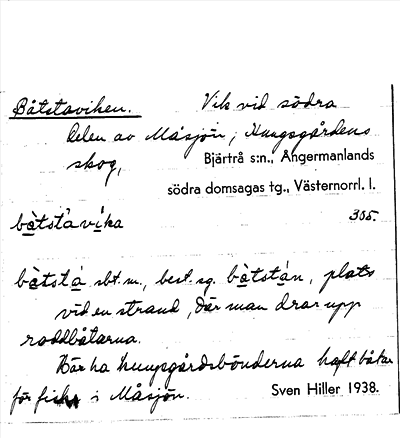 Båtstaviken. Vik vid södra
delen av Måsjön, Kungsgårdens
skog, Bjärtrå s:n., Ångermanlands
södra domsagas tg., Västernorrl. l.
bå̀tstàvi̇ka 305.
bå̀tstà sbt. m., best. sg. bå̀tstàn, plats
vid en strand, där man drar upp
roddbåtarna.
Här ha kungsgårdsbönderna haft båtar
för fiske i Måsjön. Sven Hiller 1938.